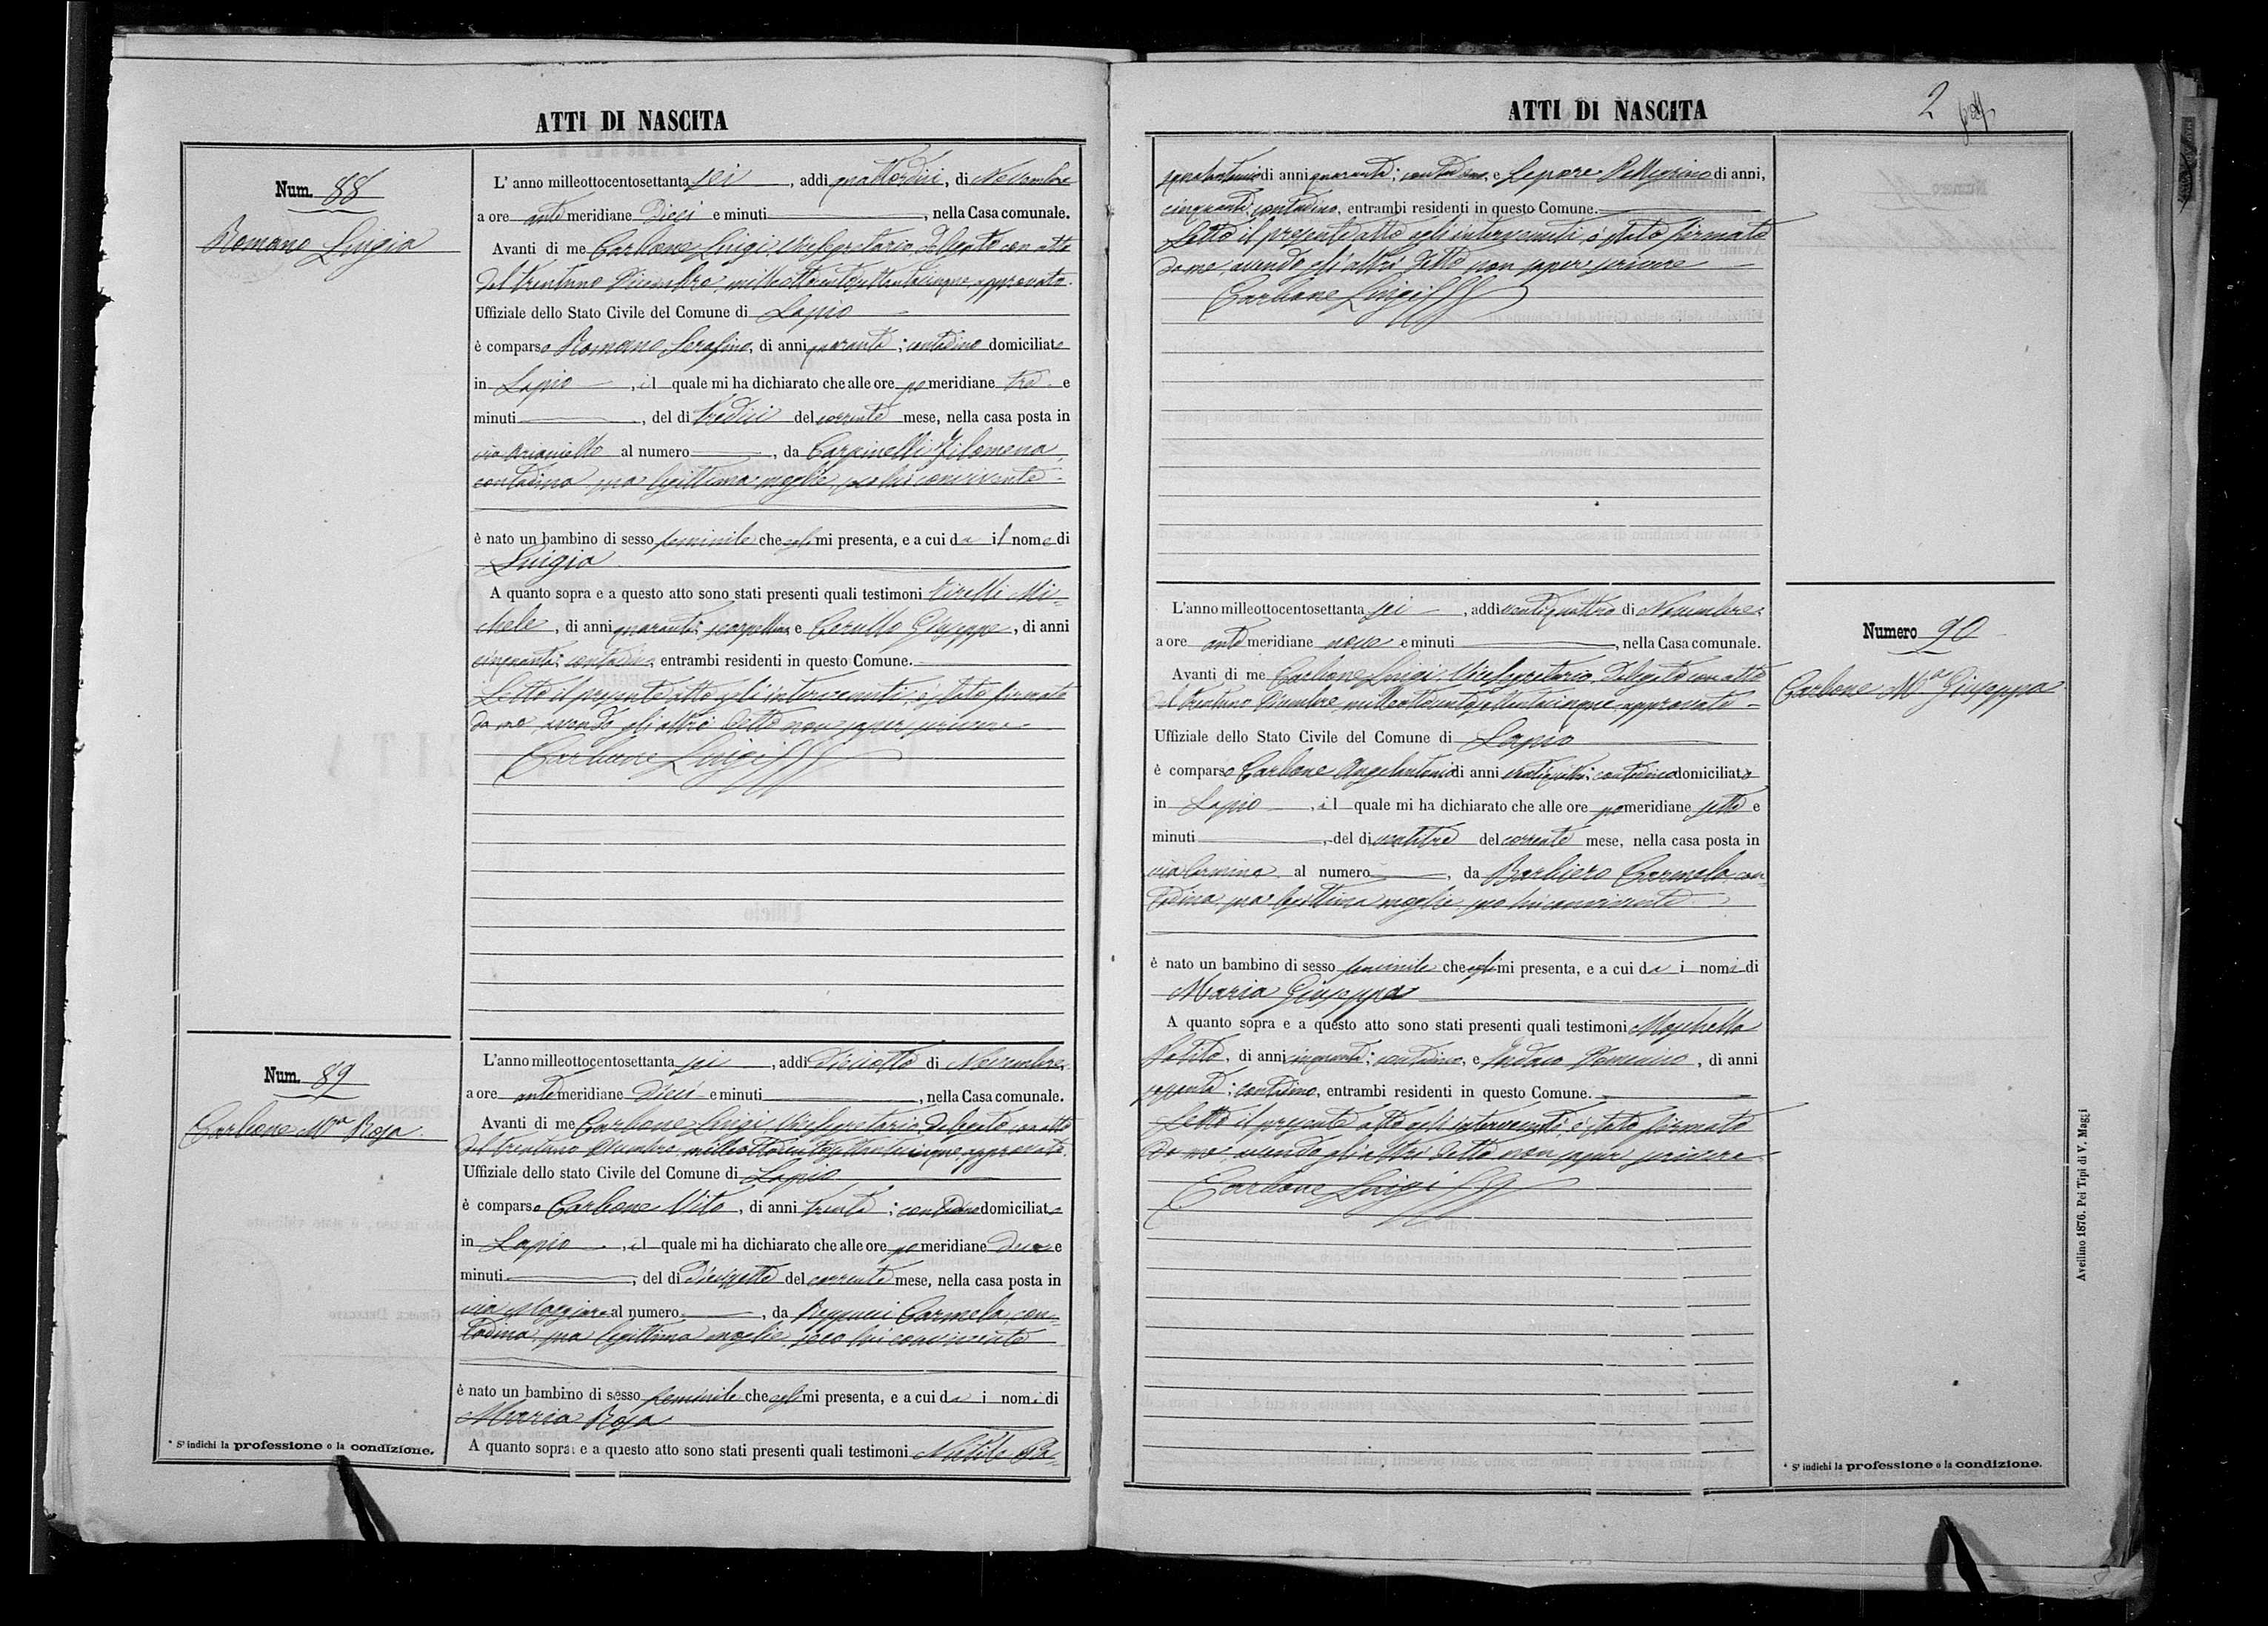 ATTI DI NASCITA
Num. 88
Romano Luigia
L' anno milleottocentosettanta sei, addi quattordici, di Novembre
a ore antemeridiane dieci e minuti, nella Casa comunale.
Avanti di me Carbone Luigi, Vicesegretario, delegato con atto
del trentuno Dicembre milleottocentosettantacinque, approvato
Uffiziale dello Stato Civile del Comune di Lapio
è comparso Romano Serafino, di anni quaranta; contadino domiciliato
in Lapio, il quale mi ha dichiarato che alle ore pomeridiane tre e
minuti, del dì tredici del corrente mese, nella casa posta in
via Arianiello al numero, da Carpinelli Filomena,
contadina sua legittima moglie, seco lui convivente
è nato un bambino di sesso feminile che egli mi presenta, e a cui da il nome di
Luigia
A quanto sopra e a questo atto sono stati presenti quali testimoni Mi-
chele, di anni quaranta; scarpellino, e Giuseppe, di anni
cinquanta; contadino, entrambi residenti in questo Comune.
Letto il presente atto agli intervenuti, è stato firmato
da me, avendo gli altri detto non saper scrivere
Carbone Luigi
Num. 89
Carbone Ma Rosa
L'anno milleottocentosettanta sei, addi diciotto di Novembre
a ore antemeridiane dieci e minuti, nella Casa comunale.
Avanti di me Carbone Luigi, Vicesegretario, delegato con atto
del trentuno Dicembre milleottocentosettantacinque approvato
Uffiziale dello stato Civile del Comune di Lapio
è comparso Carbone Vito, di anni trenta; contadino domiciliato
in Lapio, il quale mi ha dichiarato che alle ore pomeridiane e
minuti, del dì diciassette del corrente mese, nella casa posta in
via Maggiore al numero, da Carmela, con-
tadina sua legittima moglie, seco lui convivente
è nato un bambino di sesso feminile che egli mi presenta, e a cui da i nomi di
Maria Rosa
A quanto sopra e a questo atto sono stati presenti quali testimoni
* S' indichi la professione o la condizione.
ATTI DI NASCITA
2
di anni quaranta; contadino, e Lepore Pellegrino di anni,
cinquanta; contadino, entrambi residenti in questo Comune.
Letto il presente atto agli intervenuti, è stato firmato
da me, avendo gli altri detto non saper scrivere
Carbone Luigi
Numero 90
Carbone Ma Giuseppa
L'anno milleottocentosettanta sei, addi ventiquattro di Novembre
a ore antemeridiane nove e minuti, nella Casa comunale.
Avanti di me Carbone Luigi, Vicesegretario, delegato con atto
del trentuno Dicembre milleottocentosettantacinque, approvato
Uffiziale dello Stato Civile del Comune di Lapio
è comparso Carbone Angelantonio di anni contadino domiciliato
in Lapio, il quale mi ha dichiarato che alle ore pomeridiane sette e
minuti, del dì ventitre del corrente mese, nella casa posta in
via al numero, da Barbiero Carmela, con-
tadina sua legittima moglie seco lui convivente
è nato un bambino di sesso feminile che egli mi presenta, e a cui da i nomi di
Maria Giuseppa
A quanto sopra e a questo atto sono stati presenti quali testimoni Moschella
di anni cinquanta; contadino, e Domenico, di anni
sessanta; contadino, entrambi residenti in questo Comune.
Letto il presente atto agli intervenuti, è stato firmato
da me avendo gli altri detto non saper scrivere
Carbone Luigi
* S' indichi la professione o la condizione.
Avellino 1876. Pei Tipi di V. Maggi